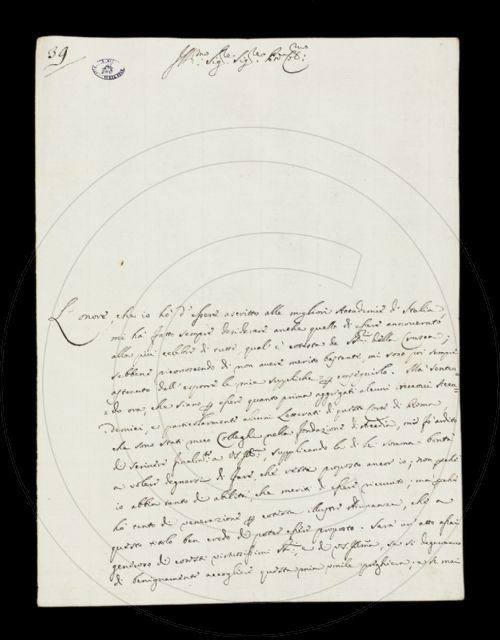 39
Ill.mo Sig.re Sig.re
L'onore, che io ho d'essere ascritto alle migliori Accademie di Italia,
mi ha fatto sempre desiderare anche quello di essere annoverato
alla più celebre di tutte, qual è cotesta della Crusca;
sebbene riconoscendo di non avere merito bastante, mi sono poi sempre
astenuto dall'esporre le mie suppliche per conseguirlo. Ma senten-
do ora, che siano per esser quanto prima aggregati alcuni Acca-
demici, e particolarmente alcuni Letterati di questa Corte di Roma
che sono stati miei Colleghi nella fondazione di Arcadia, mi fo ardito
di scrivere supplicando la di lei somma bontà
a volersi degnare di fare, che resti proposto ancor io; non perché
io abbia tanto di abilità, che meriti d'essere ricevuto; ma perché
ho tanto di venerazione per cotesta Adunanza, che a
questo titolo ben credo di poter essere proposto. Sarà un atto assai
generoso di cotesti virtuosissimi e di VS Ill.ma, se si degneranno
di benignamente accogliere questa mia umile preghiera; e se mai